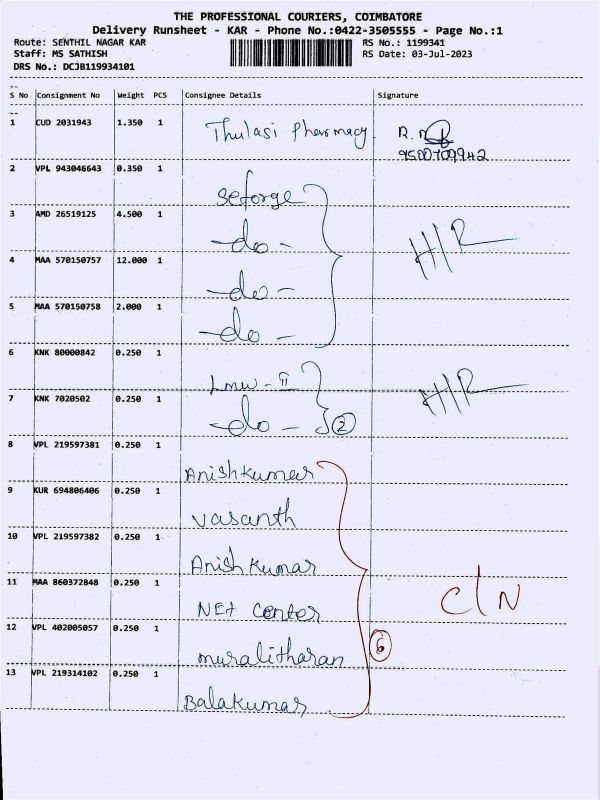 THE PROFESSIONAL COURIERS, COIMBATORE
Delivery Runsheet - KAR - Phone No.:0422-3505555 - Page No.:1
Route: SENTHIL NAGAR KAR RS No.: 1199341
Staff: MS SATHISH RS Date: 03-Jul-2023
DRS No.: DCJB119934101
S No Consignment No Weight PCS Consignee Details Signature
1 CUD 2031943 1.350 1 Thulasi Pharmacy R.
9500709942
2 VPL 943046643 0.350 1 Seforge
3 AMD 26519125 4.500 1 -do- H/R
4 MAA 570150757 12.000 1 -do-
5 MAA 570150758 2.000 1 -do-
6 KNK 80000842 0.250 1 Lmw-II
7 KNK 7020502 0.250 1 -do- 2 H/R
8 VPL 219597381 0.250 1 Anishkumar
9 KUR 694806406 0.250 1 Vasanth
10 VPL 219597382 0.250 1 Anish Kumar
11 MAA 860372848 0.250 1 NET Center C/N
12 VPL 402005057 0.250 1 muralitharan 6
13 VPL 219314102 0.250 1 Balakumar